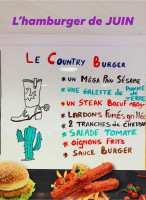 L'hamburger de JUIN
LE COUNTRY BURGER
* UN MÉGA PAIN SÉSAME
* UNE GALETTE DE POMME DE TERRE
* UN STEAK BŒUF
* LARDONS FUMÉS
* 2 TRANCHES DE CHEDDAR
* SALADE TOMATE
* OIGNONS FRITS
* SAUCE BURGER